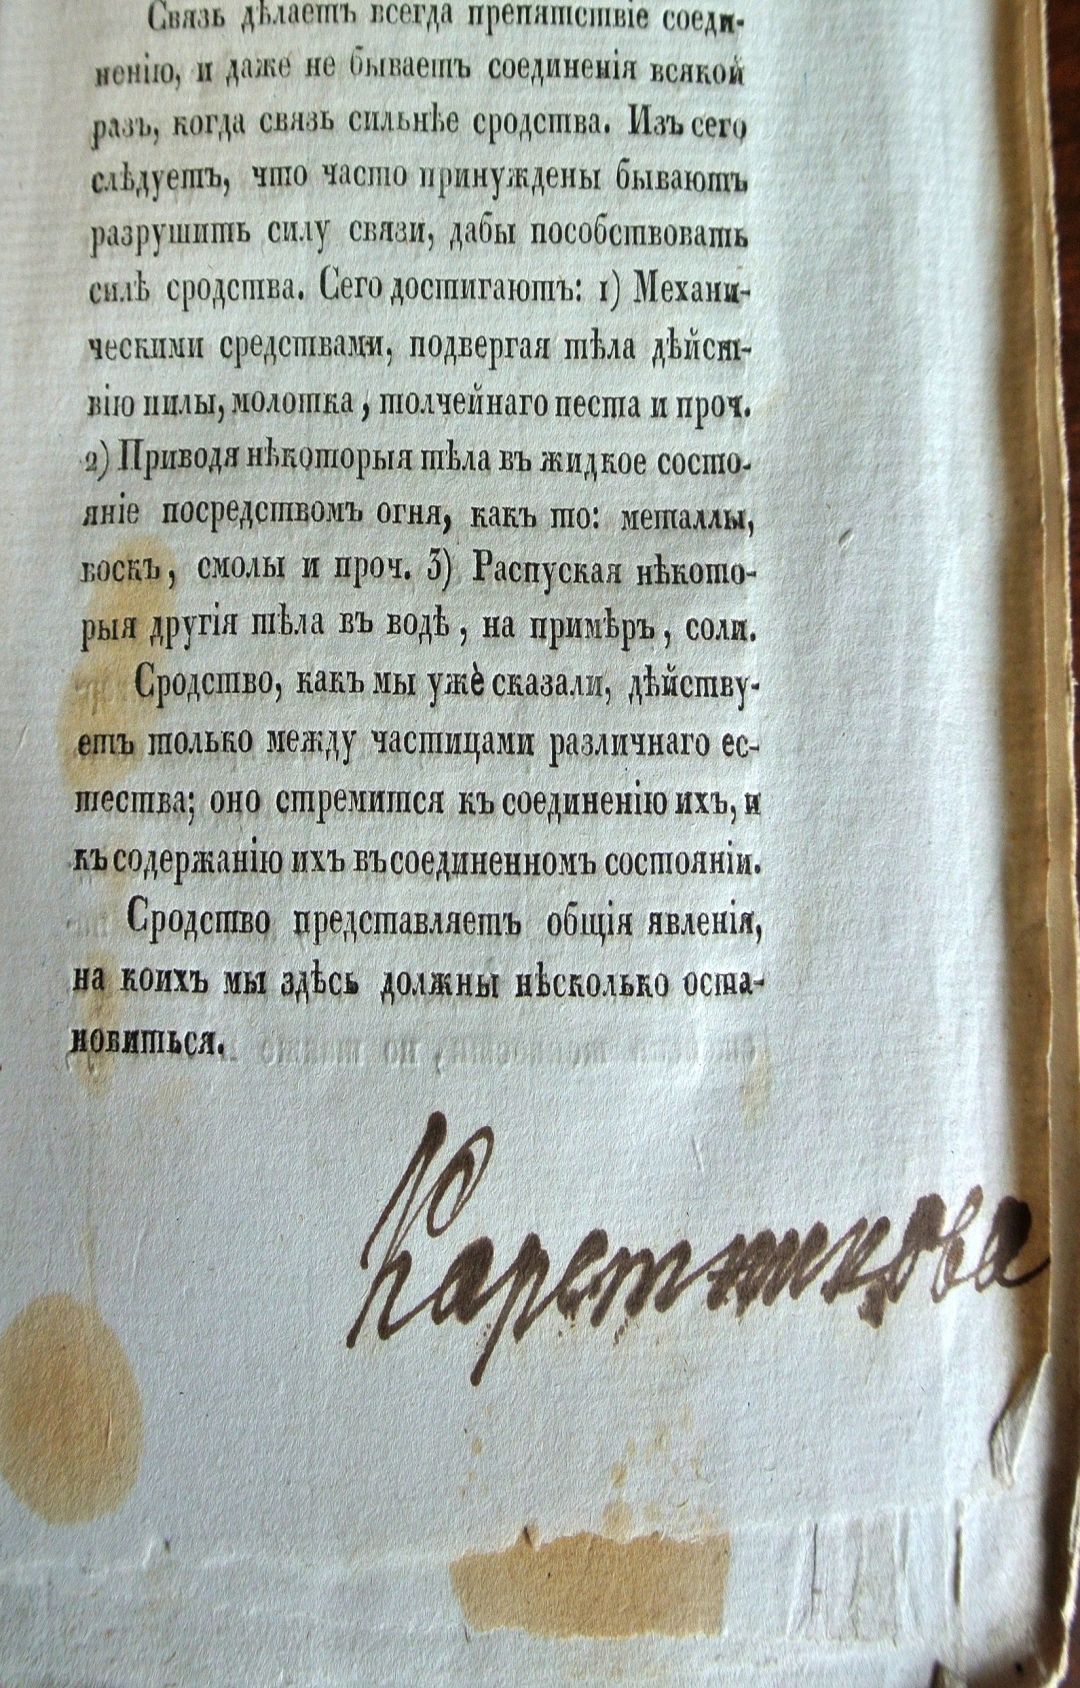 Связь дѣлаетъ всегда препятствіе соеди-
ненію, и даже не бываетъ соединенія всякой
разъ, когда связь сильнѣе сродства. Изъ сего
слѣдуетъ, что часто принуждены бываютъ
разрушить силу связи, дабы пособствовать
силѣ сродства. Сего достигаютъ: 1) Механи-
ческими средствами, подвергая тѣла дѣйст-
вію пилы, молотка, толчейнаго песта и проч.
2) Приводя нѣкоторыя тѣла въ жидкое состо-
яніе посредствомъ огня, какъ то: металлы,
воскъ, смолы и проч. 3) Распуская нѣкото-
рыя другія тѣла въ водѣ, на примѣръ, соли.
Сродство, какъ мы уже сказали, дѣйству-
етъ только между частицами различнаго ес-
тества; оно стремится къ соединенію ихъ, и
къ содержанію ихъ въ соединенномъ состояніи.
Сродство представляетъ общія явленія,
на коихъ мы здѣсь должны нѣсколько оста-
новиться.